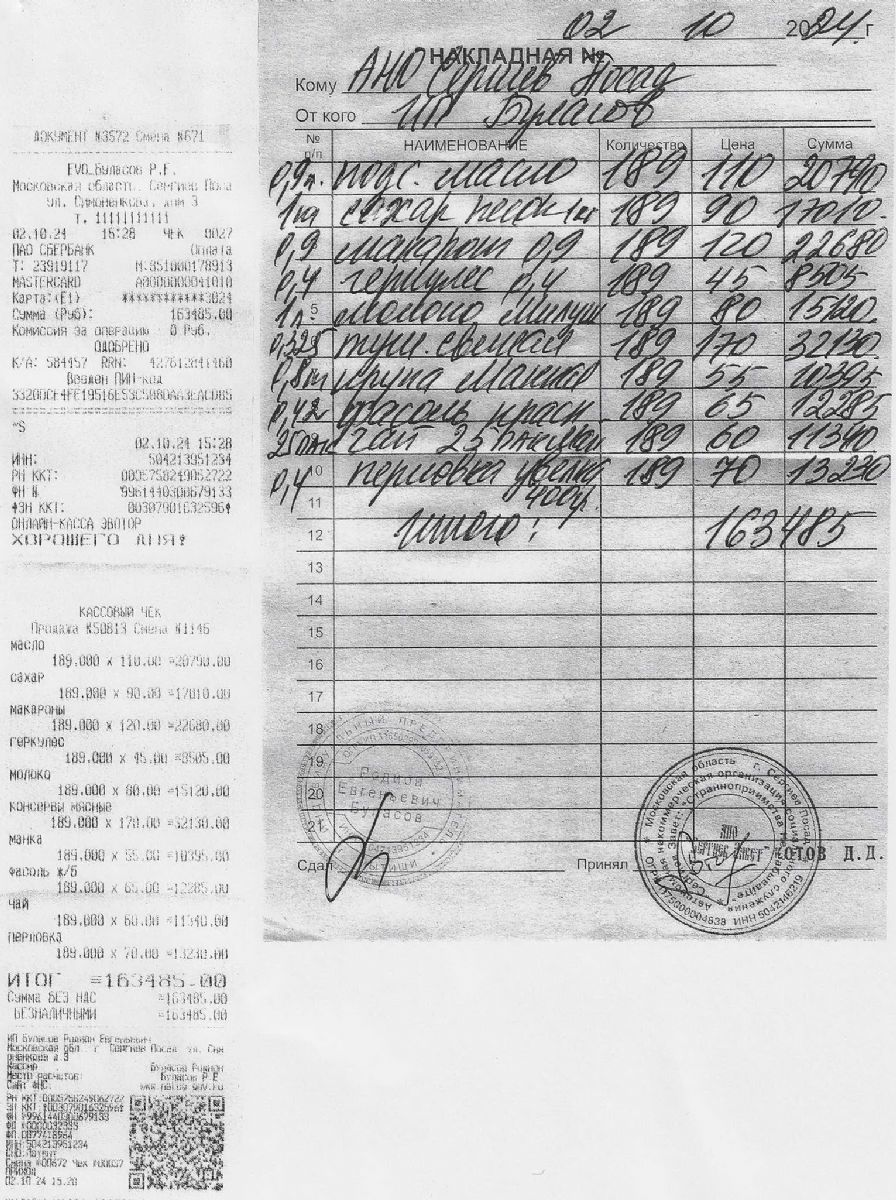 ДОКУМЕНТ №3572 Смена №671
EVO_Буласов Р.Е.
Московская область, Сергиев Поса
т. 11111111111
02.10.24 15:28 ЧЕК 0027
ПАО СБЕРБАНК Оплата
Т: 23919117 М:851000178913
MASTERCARD A0000000041010
Карта:(E1) ************3024
Сумма (Руб): 163485.00
Комиссия за операцию 0 Руб.
ОДОБРЕНО
К/А: 584457 RRN:
Введен ПИН-код
02.10.24 15:28
ИНН: 504213951234
РН ККТ: 0005758249062722
ФН № 9961440300679133
ЗН ККТ:
ОНЛАЙН-КАССА ЭВОТОР
ХОРОШЕГО ДНЯ!
КАССОВЫЙ ЧЕК
Продажа №50813 Смена №1146
масло
189.000 x 110.00 =20790.00
сахар
189.000 x 90.00 =17010.00
макароны
189.000 x 120.00 =22680.00
геркулес
189.000 x 45.00 =8505.00
молоко
189.000 x 80.00 =15120.00
консервы мясные
189.000 x 170.00 =32130.00
манка
189.000 x 55.00 =10395.00
фасоль ж/б
189.000 x 65.00 =12285.00
чай
189.000 x 60.00 =11340.00
перловка
189.000 x 70.00 =13230.00
ИТОГ =163485.00
Сумма БЕЗ НДС =163485.00
БЕЗНАЛИЧНЫМИ =163485.00
ИП Буласов Родион Евгеньевич
Московская обл., г Сергиев Посад
Буласов Родион
Место расчетов: Буласов Р.Е
Сайт ФНС: www.nalog.gov.ru
ИНН:504213951234
СНО:Патент
Смена №00672 Чек №00037
ПРИХОД
02.10.24 15:28
02 10 2024 г
НАКЛАДНАЯ №
Кому АНО Сергиев Посад
От кого ИП Буласов
№ п/п НАИМЕНОВАНИЕ Количество Цена Сумма
0,9л. подс. масло 189 110 20790
сахар песок 1кг 189 90 17010
0,9 макароны 0,9 189 120 22680
0,4 геркулес 0,4 189 45 8505
1л. 5 молоко 189 80 15120
0,325 туш. свежая 189 170 32130
крупа манная 189 55 10395
0,42 фасоль красн 189 65 12285
чай 25 189 60 11340
0,4 10 перловка 400гр. 189 70 13230
11
12 Итого: 163485
13
14
15
16
17
18
19
20
21
Родион
Евгеньевич
Буласов
Сдал Принял КОТОВ Д.Д.
Московская область г. Сергиев Посад
АНО
ИНН 5042146219